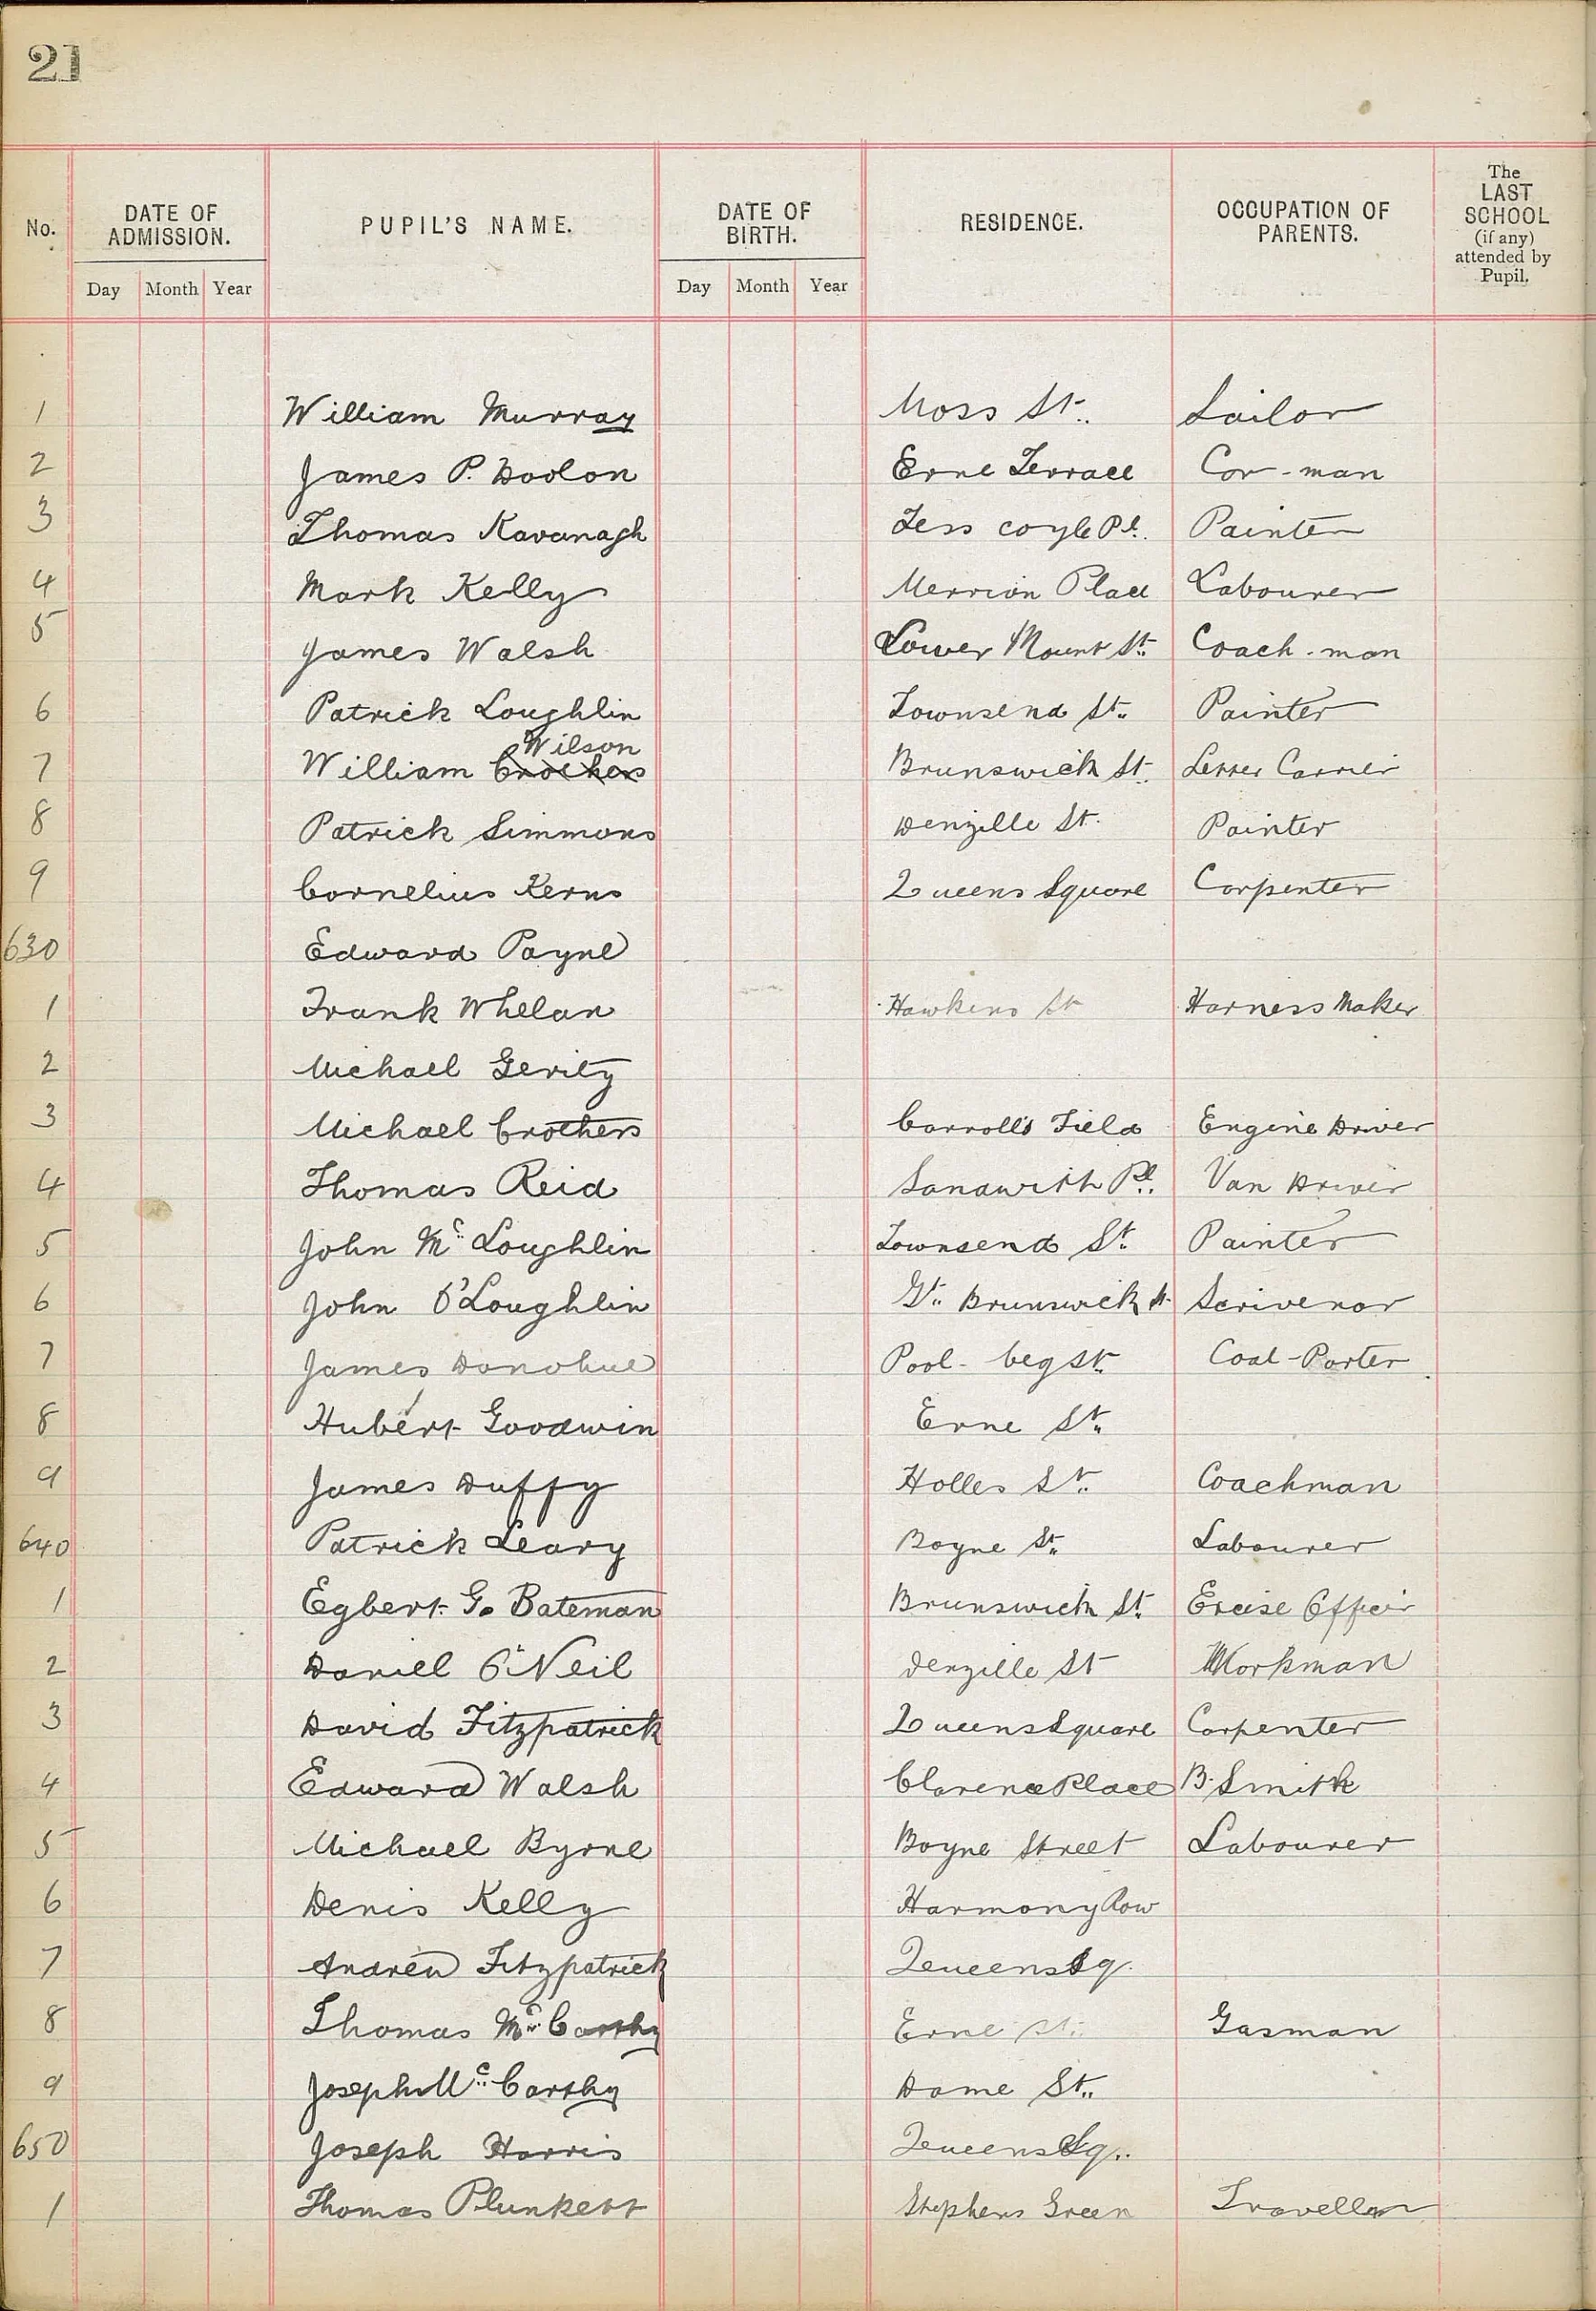 21
No. DATE OF ADMISSION. PUPIL'S NAME. DATE OF BIRTH. RESIDENCE. OCCUPATION OF PARENTS. The LAST SCHOOL (if any) attended by Pupil.
Day Month Year Day Month Year
1 William Murray Moss St. Sailor
2 James P. Doolan Erne Terrace Car-man
3 Thomas Kavanagh coyle Pl. Painter
4 Mark Kelly Merrion Place Labourer
5 James Walsh Lower Mount St. Coach-man
6 Patrick Loughlin Townsend St. Painter
Wilson
7 William Crothers Brunswick St. Letter Carrier
8 Patrick Simmons Denzille St. Painter
9 Cornelius Kerns Queens Square Carpenter
630 Edward Payne
1 Frank Whelan Hawkins St Harness Maker
2 Michael Gerity
3 Michael Crothers Carroll's Field Engine Driver
4 Thomas Reid Sandwith Pl. Van Driver
5 John Mc Loughlin Townsend St. Painter
6 John O'Loughlin Gt. Brunswick St. Scrivenor
7 James Donohue Pool-beg St. Coal-Porter
8 Hubert Goodwin Erne St.
9 James Duffy Holles St. Coachman
640 Patrick Leary Boyne St. Labourer
1 Egbert G. Bateman Brunswick St. Excise Officer
2 Daniel O'Neil Denzille St Workman
3 David Fitzpatrick Queens Square Carpenter
4 Edward Walsh Clarence Place B. Smith
5 Michael Byrne Boyne Street Labourer
6 Denis Kelly Harmony Row
7 Andrew Fitzpatrick Queens Sq.
8 Thomas McCarthy Erne St. Gasman
9 Joseph McCarthy Dame St.
650 Joseph Harris Queens Sq.
1 Thomas Plunkett Stephens Green Traveller